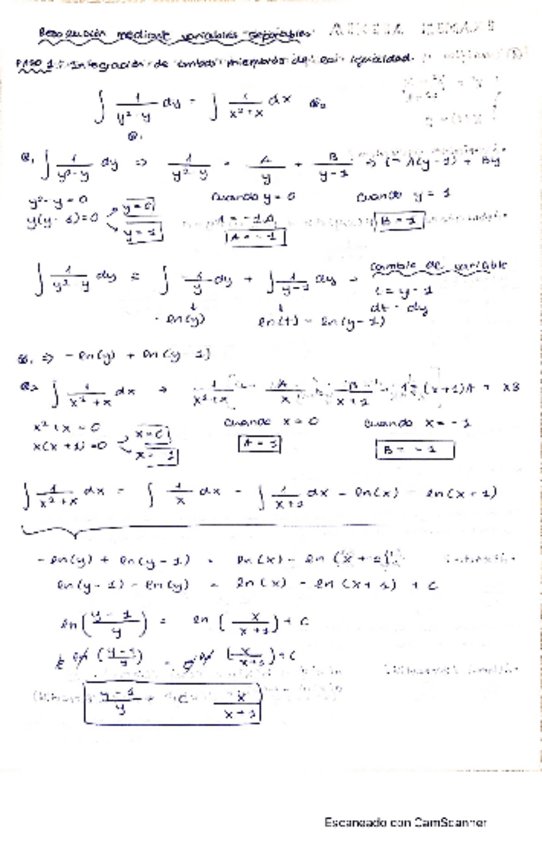 Resolución mediante variables separables
PASO 1: Integración de ambos miembros de la igualdad.
∫ 1/(y²-y) dy = ∫ 1/(x²+x) dx
∫ 1/(y²-y) dy ⇒ 1/(y²-y) = A/y + B/(y-1) ⇒ 1 = A(y-1) + By
y²-y = 0 cuando y = 0 cuando y = 1
y(y-1)=0 y=0 1 = -1A B = 1
y=1 A = -1
∫ 1/(y²-y) dy = ∫ -1/y dy + ∫ 1/(y-1) dy cambio de variable
t = y-1
-ln(y) ln(t) = ln(y-1) dt = dy
⇒ -ln(y) + ln(y-1)
∫ 1/(x²+x) dx → 1/(x²+x) = A/x + B/(x+1) 1 = (x+1)A + XB
x²+x = 0 cuando x = 0 cuando x = -1
x(x+1)=0 x=0 A = 1 B = -1
x=-1
∫ 1/(x²+x) dx = ∫ 1/x dx - ∫ 1/(x+1) dx = ln(x) - ln(x+1)
-ln(y) + ln(y-1) = ln(x) - ln(x+1)
ln(y-1) - ln(y) = ln(x) - ln(x+1) + C
ln((y-1)/y) = ln(x/(x+1)) + C
e ln((y-1)/y) = e ln(x/(x+1)) + C
(y-1)/y = C x/(x+1)
Escaneado con CamScanner